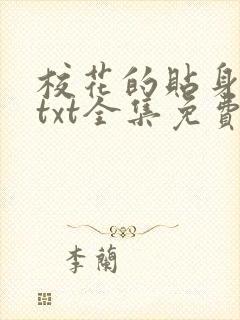 校花的貼身
txt全集免費
李蘭